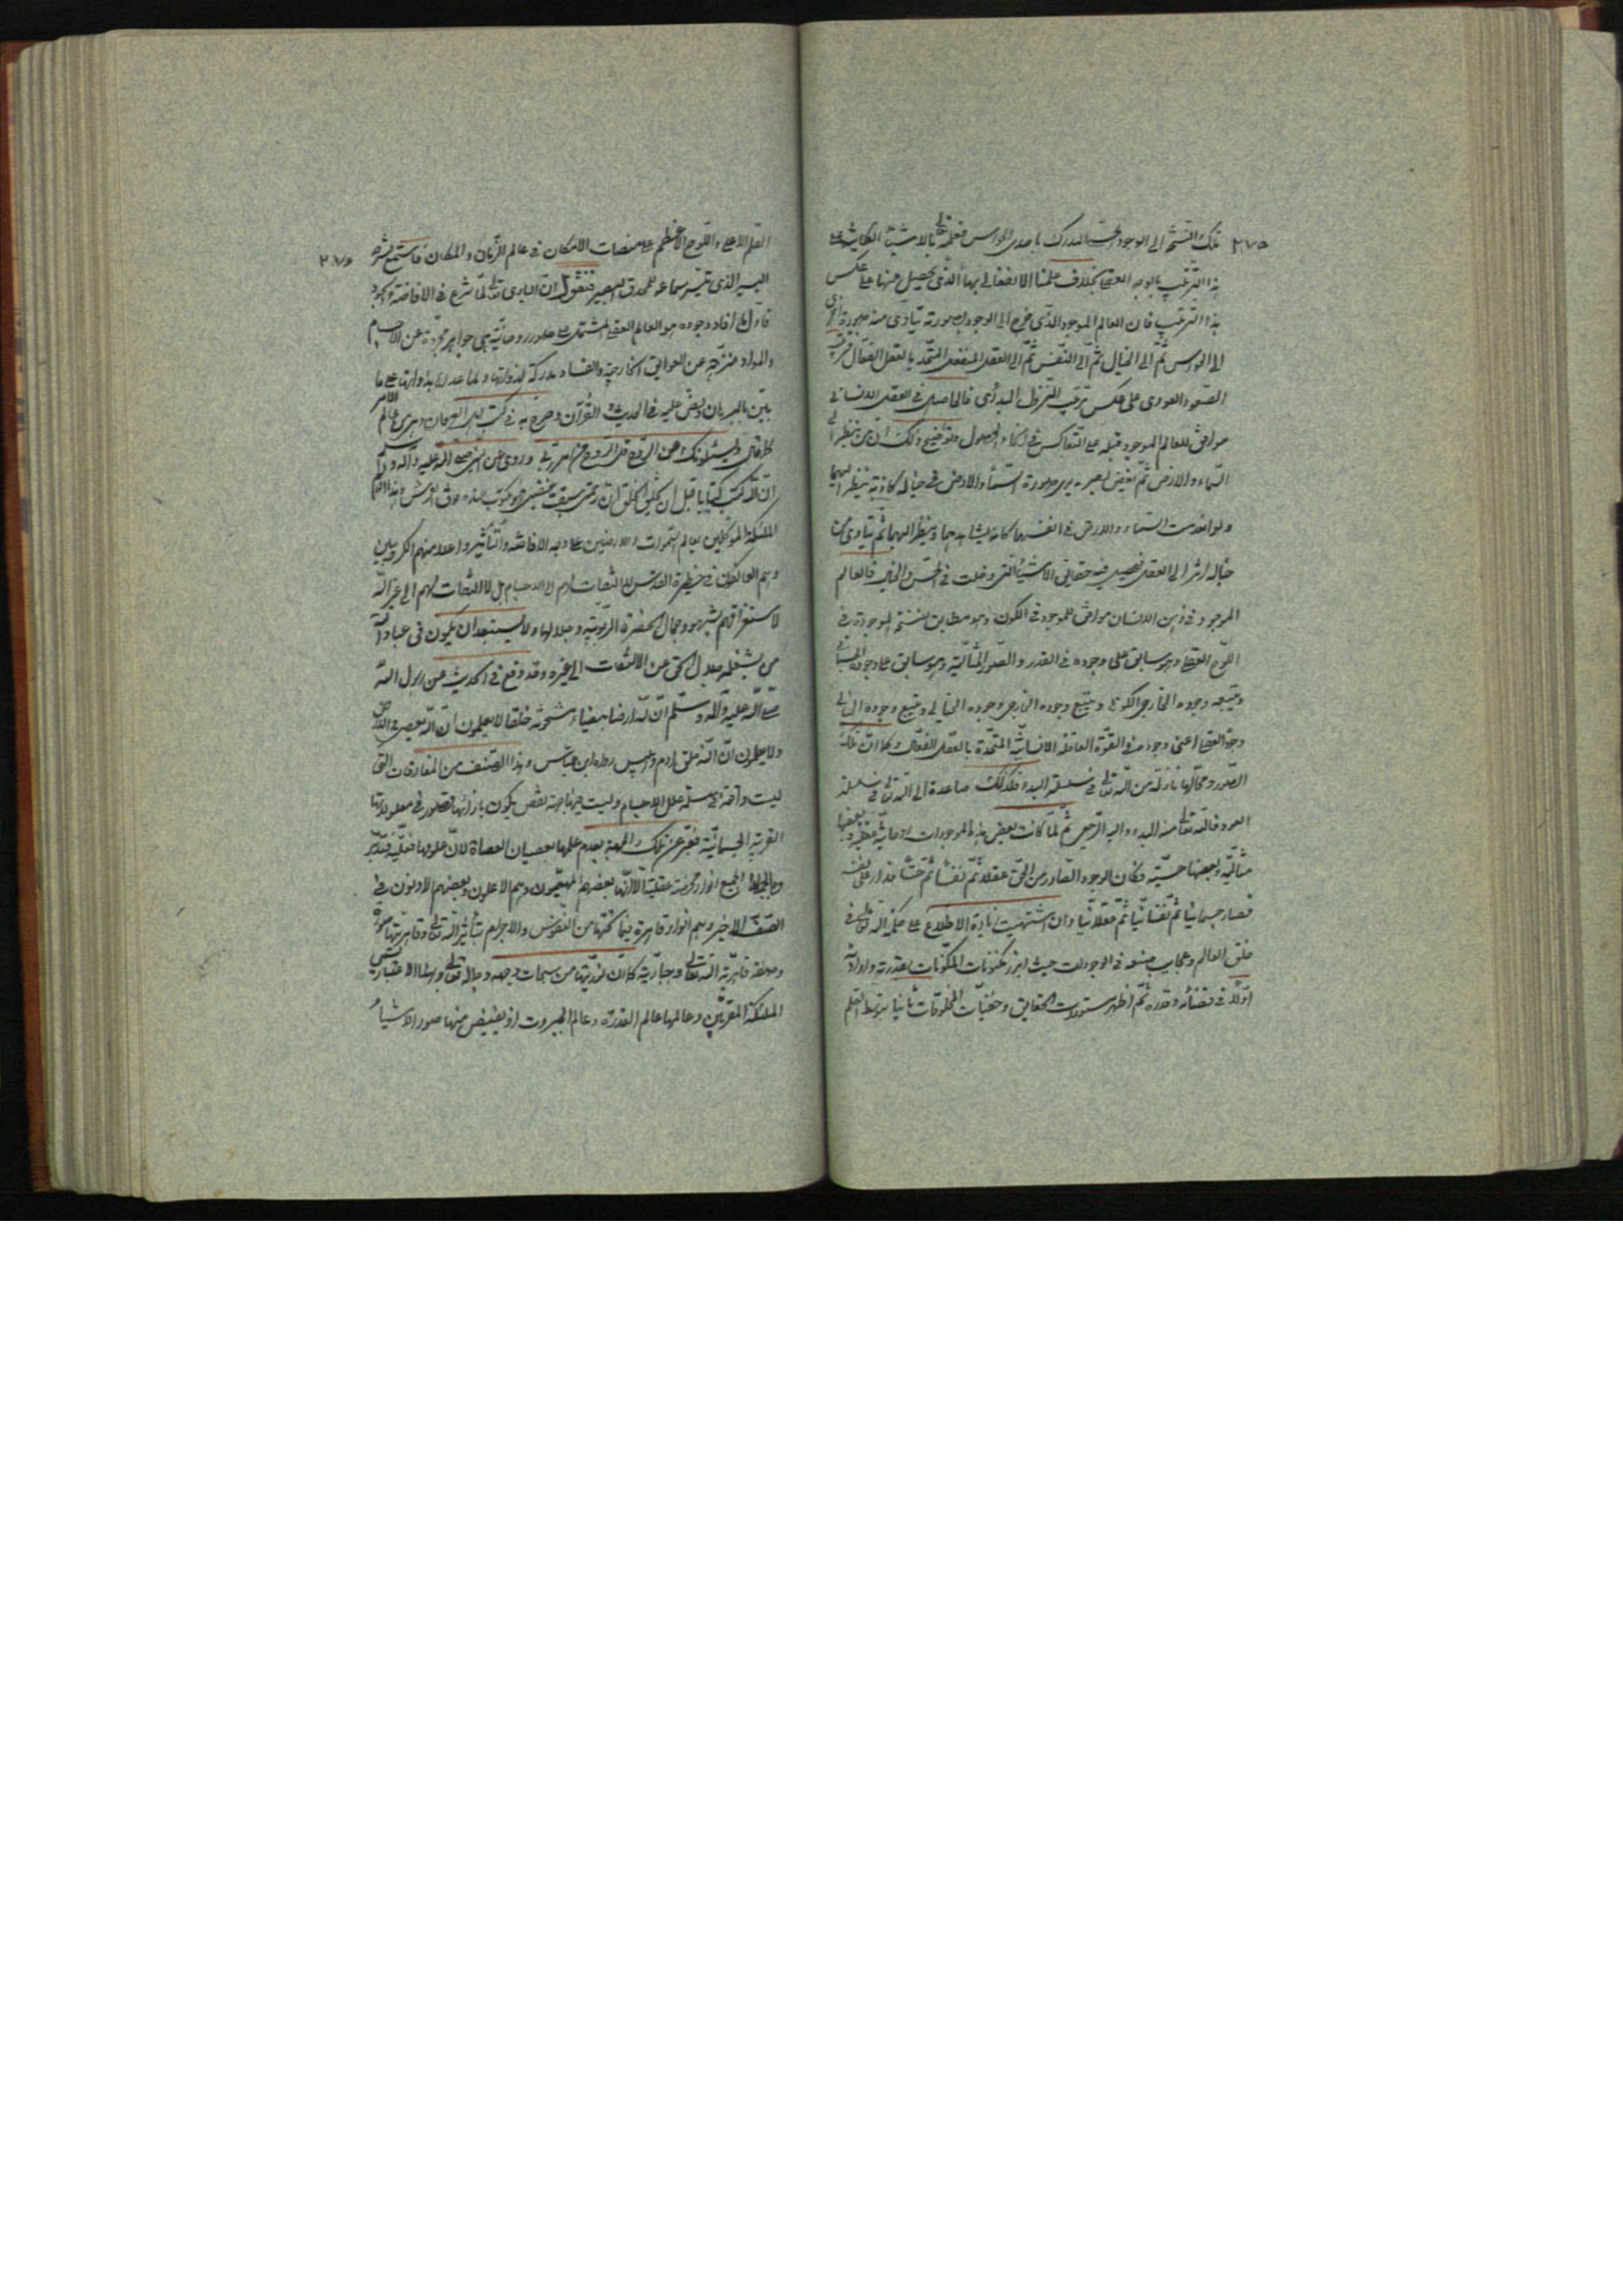 ٢٧٥
تلك النسخة الى الوجود الحسى المدرك باحدى الحواس فعلمه تعالى بالاشياء الكاينة على
هذا الترتيب بالوجه العقلى بخلاف علمنا الانفعالى بها الذى يحصل منها على عكس
هذا الترتيب فان العالم الموجود الذى خرج الى الوجود بصورته يتادى منه صورة اخرى
الى الحواس ثم الى الخيال ثم الى النفس ثم الى العقل المنفعل المتحد بالعقل الفعال
الصعود العودى على عكس ترتيب النزول البدأى فالحاصل فى العقل الانسانى
موافق للعالم الموجود قبله على التعاكس فى انحاء الحصول وتوضيح ذلك ان من ينظر الى
السماء والارض ثم يغيض بصره يرى صورة السماء والارض فى خياله كانه ينظر اليهما
ولو انعدمت السماء والارض فى انفسهما كانه يشاهدهما وينظر اليهما ثم يتادى من
خياله اثر الى العقل فيحصل فيه حقايق الاشياء التى دخلت فى الحس والخيال فالعالم
الموجود فى ذهن الانسان موافق للموجود فى الكون وهو مطابق للنسخة الموجودة فى
اللوح العقلى وهو سابق على وجوده فى القدر والصور المثالية وهو سابق على وجوده الجسمانى
ويتبعه وجوده الخارجى الكونى ويتبع وجوده الخارجى وجوده الخيالى ويتبع وجوده الخيالى
وجوده العقلى اعنى وجوده فى القوة العاقلة الانسانية المتحدة بالعقل الفعال وكما ان تلك
الصور ومحالها نازلة من الله تعالى فى سلسلة البدء فكذلك صاعدة الى الله تعالى فى سلسلة
العود فالله تعالى منه البدء واليه الرجعى ثم لما كانت بعض هذه الموجودات روحانية عقلية وبعضها
مثالية وبعضها حسية فكان الوجود الصادر من الحق عقلا ثم نفسا ثم حسا فدار على نفسه
فصار جسمانيا ثم نفسانيا ثم عقلانيا وان اشتهيت زيادة الاطلاع على حكمة الله تعالى فى
خلق العالم وعجايب صنعه فى الموجودات حيث ابرز مكنونات المكونات بقدرته وارادته
اولا فى قضائه وقدره ثم اظهر مستورات الحقايق وخفيات المخلوقات ثانيا بتوسط القلم
القلم الاعلى واللوح الاعظم على منصات الامكان فى عالم الزمان والمكان فاستمع لشرح
اليسير الذى تيسر سماعه للمحدق البصير فنقول ان البارى تعالى لما شرع فى الافاضة والجود
فاول ما افاد وجوده هو العالم العقلى المشتمل على صور روحانية هى جواهر مجردة عن الاجسام
والمواد منزهة عن العوايق الخارجية والفساد مدركة لذواتها ولما عداها بذواتها على ما
بين بالبرهان ونص عليه فى الحديث والقرآن وصرح به فى كتب اهل العرفان وهى عالم الامر
كما قال ويسئلونك عن الروح قل الروح من امر ربى وروى عن النبى صلى الله عليه وآله وسلم
ان الله كتب كتابا قبل ان يخلق الخلق ان رحمتى سبقت غضبى فهو مكتوب عنده فوق العرش وهذا
الملئكة الموكلين بعالم السموات والارضين على وجه الافاضة والتأثير واعلا منهم الكروبيين
وهم العاكفون فى حظيرة القدس لا التفات لهم الى الاجسام بل لا التفات لهم الى غير الله
لاستغراقهم بشهود جمال الحضرة الربوبية وجلالها ولا يستبعد ان يكون فى عباد الله
من يشغله جلال الحق عن الالتفات الى غيره وقد وقع فى الحديث عن رسول الله
صلى الله عليه وآله وسلم ان لله ارضا بيضاء مشحونة خلقا لا يعلمون ان الله يعصى فى الارض
ولا يعلمون ان الله خلق آدم وابليس رواه ابن عباس وهذا الصنف من المفارقات التى
ليست واقعة فى سلسلة علل الاجسام وليست فيها جهة نقص يكون بازائها قصور فى معلولاتها
القريبة الجسمانية فعبر عن تلك الجهة بعدم علمها بعصيان العصاة لان علومها فعلية فتدبر
وبالجملة الجميع انوار محضة عقلية الا ان بعضهم المهيمون وهم الاعلون وبعضهم الادنون فى
الصف الاخير وهم انوار قاهرة فيما تحتها من النفوس والاجرام بتأثير الله تعالى وقاهريتها صورة
وصفة قاهرية الله تعالى وجبارية كما ان نوريتها من سبحات وجهه وجلاله تعالى وبهذا الاعتبار يسمى
الملئكة المقربين وعالمها عالم القدرة وعالم الجبروت اذ يفيض منها صور الاشياء